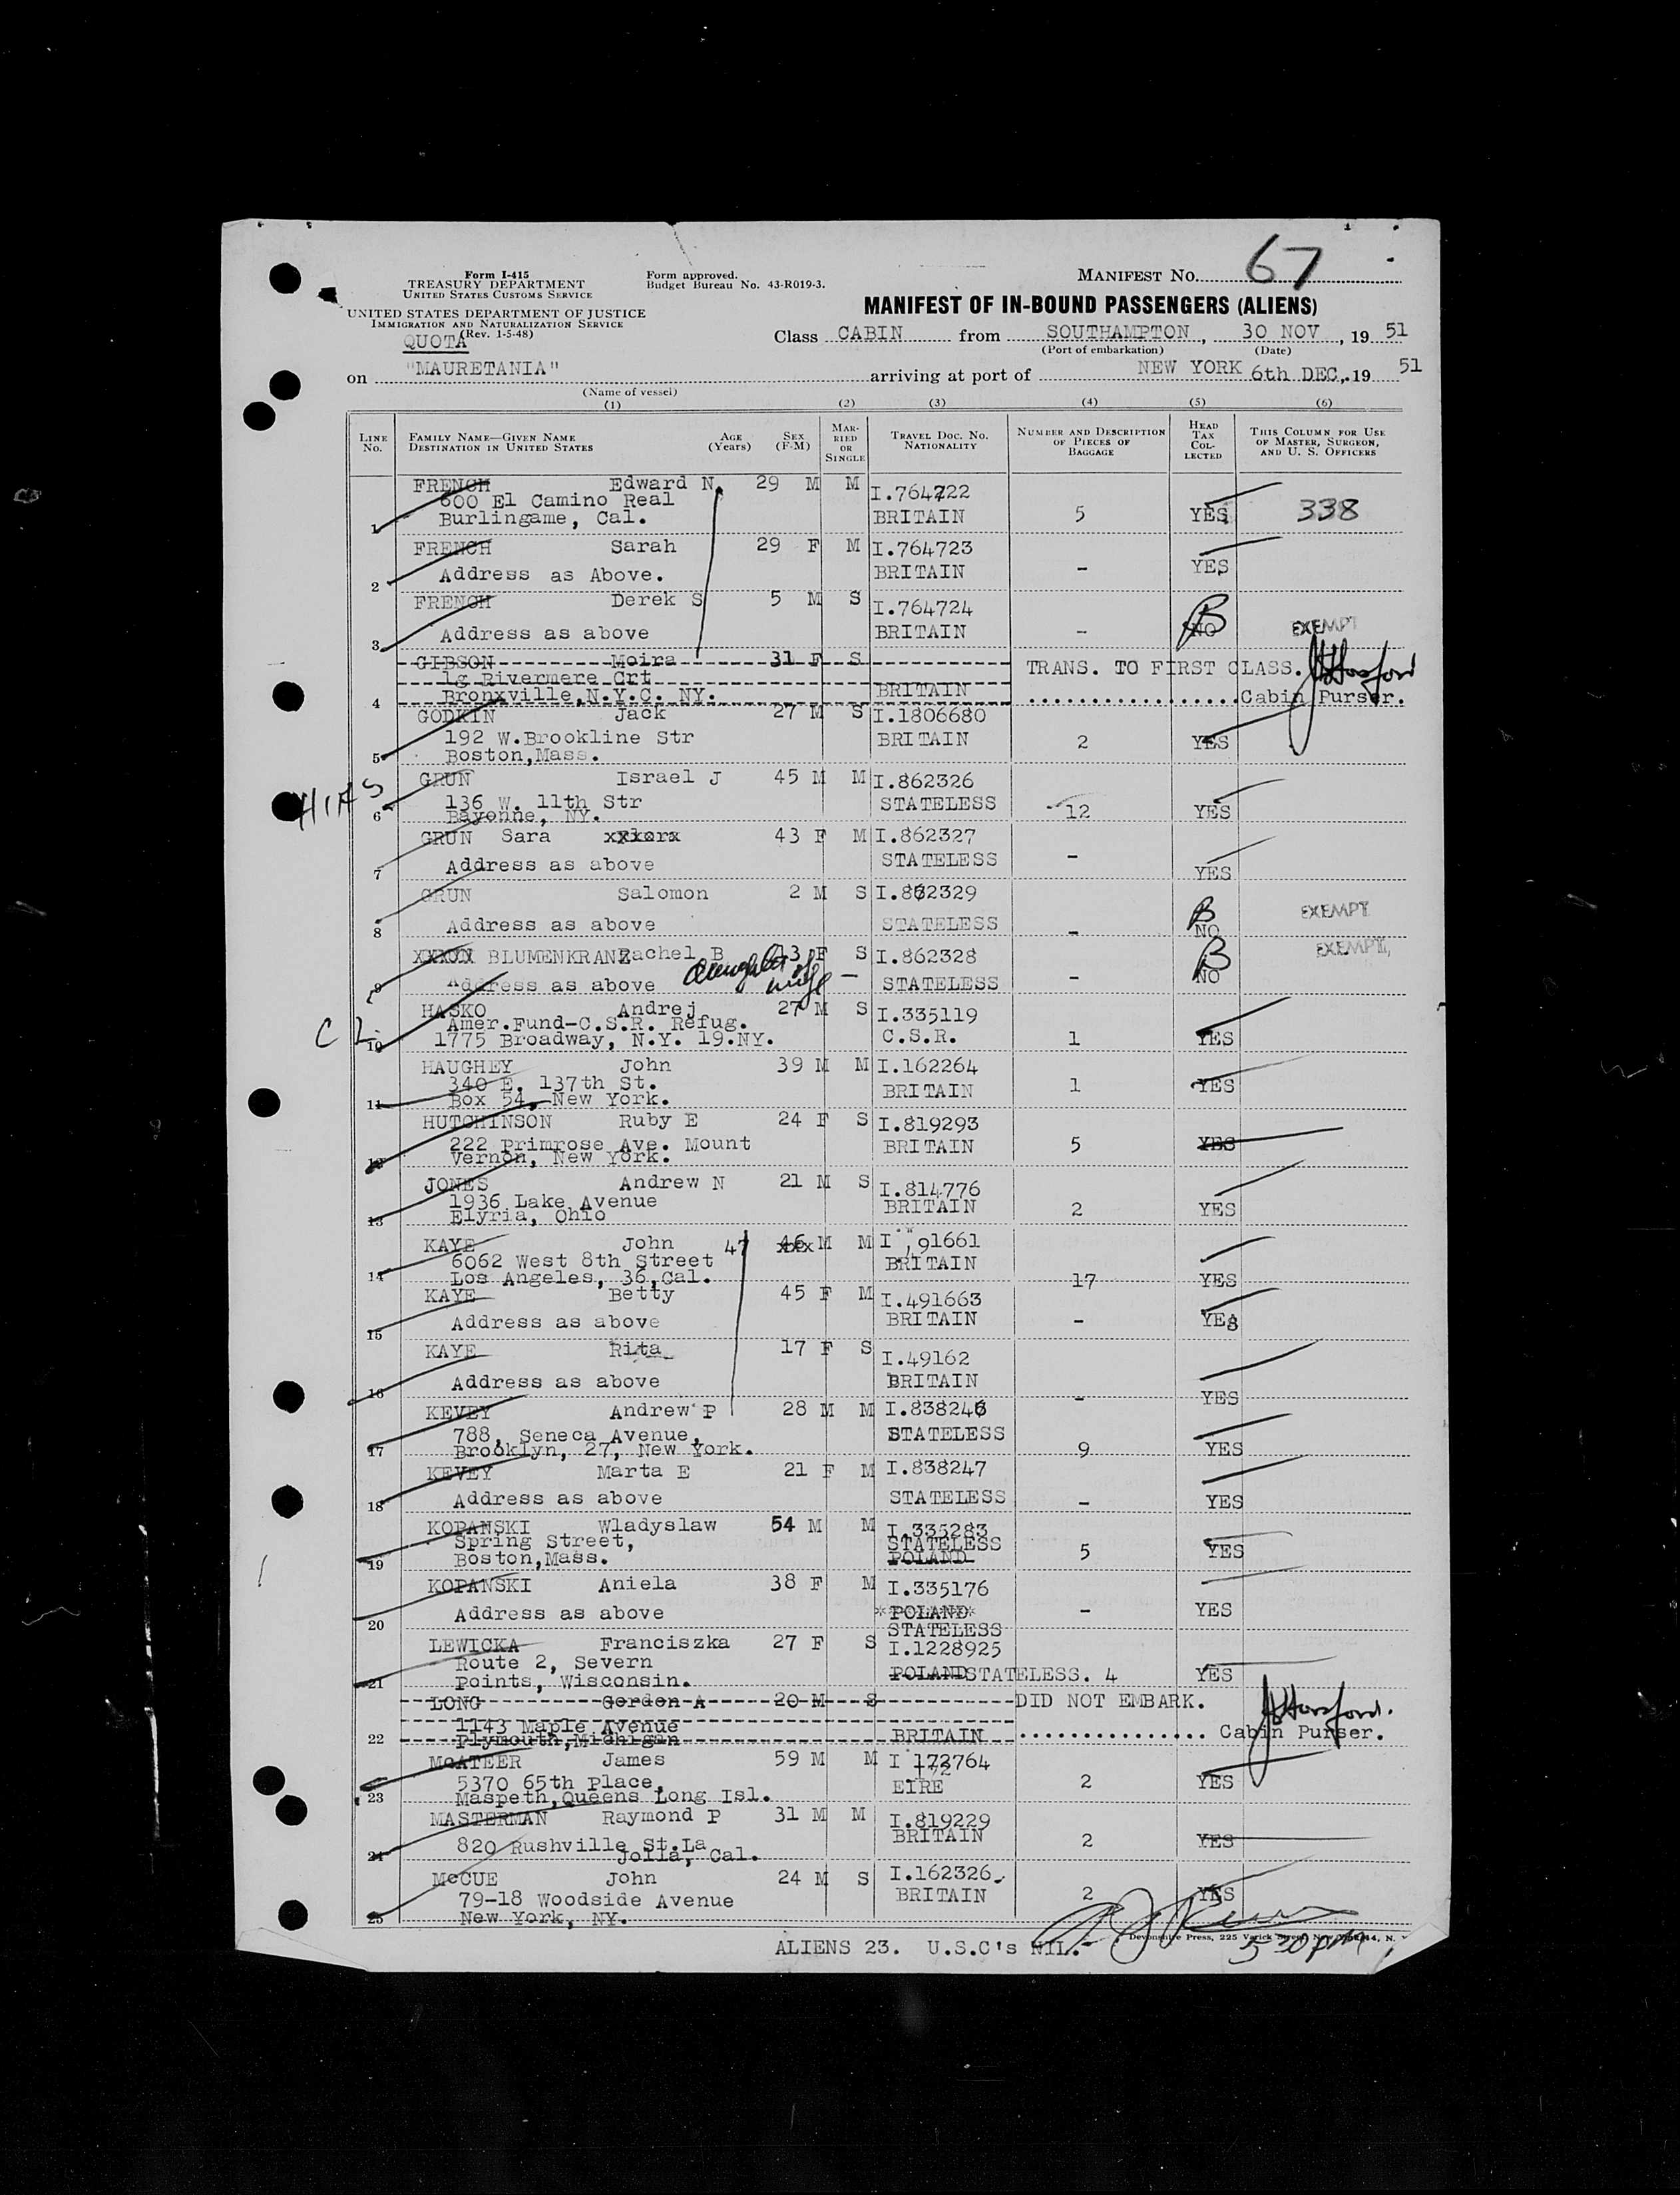 67
Form I-415
TREASURY DEPARTMENT
UNITED STATES CUSTOMS SERVICE
Form approved.
Budget Bureau No. 43-R019-3.
MANIFEST NO.
UNITED STATES DEPARTMENT OF JUSTICE
IMMIGRATION AND NATURALIZATION SERVICE
(Rev. 1-5-48)
MANIFEST OF IN-BOUND PASSENGERS (ALIENS)
QUOTA
Class CABIN from SOUTHAMPTON, 30 NOV, 19 51
(Port of embarkation) (Date)
on "MAURETANIA" arriving at port of NEW YORK 6th DEC, 19 51
(Name of vessel)
(1) (2) (3) (4) (5) (6)
LINE NO. FAMILY NAME—GIVEN NAME DESTINATION IN UNITED STATES AGE (Years) SEX (F-M) MARRIED OR SINGLE TRAVEL DOC. NO. NATIONALITY NUMBER AND DESCRIPTION OF PIECES OF BAGGAGE HEAD TAX COLLECTED THIS COLUMN FOR USE OF MASTER, SURGEON, AND U. S. OFFICERS
FRENCH Edward N. 29 M M I.764722
600 El Camino Real
1 Burlingame, Cal. BRITAIN 5 YES 338
FRENCH Sarah 29 F M I.764723
2 Address as Above. BRITAIN - YES
FRENCH Derek S 5 M S I.764724
3 Address as above BRITAIN - NO B EXEMPT
GIBSON Moira 31 F S TRANS. TO FIRST CLASS.
1g Rivermere Crt
4 Bronxville, N.Y.C. NY. BRITAIN Cabin Purser.
GODKIN Jack 27 M S I.1806680
192 W.Brookline Str BRITAIN 2 YES
5 Boston,Mass.
HIAS
GRUN Israel J 45 M M I.862326
136 W. 11th Str STATELESS 12 YES
6 Bayonne, NY.
GRUN Sara 43 F M I.862327
7 Address as above STATELESS - YES
GRUN Salomon 2 M S I.862329
8 Address as above STATELESS - NO B EXEMPT
BLUMENKRANZ Rachel B 13 F S I.862328
daughter of wife -
9 Address as above STATELESS - NO B EXEMPT,
HASKO Andrej 27 M S I.335119
Amer.Fund-C.S.R. Refug. C.S.R. 1 YES
10 1775 Broadway, N.Y. 19.NY.
HAUGHEY John 39 M M I.162264
340 E. 137th St. BRITAIN 1 YES
11 Box 54, New York.
HUTCHINSON Ruby E 24 F S I.819293
222 Primrose Ave. Mount BRITAIN 5 YES
12 Vernon, New York.
JONES Andrew N 21 M S I.814776
1936 Lake Avenue BRITAIN 2 YES
13 Elyria, Ohio
KAYE John 47 46 M M I 91661
6062 West 8th Street BRITAIN
14 Los Angeles, 36,Cal. 17 YES
KAYE Betty 45 F M I.491663
15 Address as above BRITAIN - YES
KAYE Rita 17 F S I.49162
16 Address as above BRITAIN - YES
KEVEY Andrew P 28 M M I.838246
788, Seneca Avenue, STATELESS
17 Brooklyn, 27, New York. 9 YES
KEVEY Marta E 21 F M I.838247
18 Address as above STATELESS - YES
KOPANSKI Wladyslaw 54 M M I.335283
Spring Street, STATELESS
19 Boston,Mass. POLAND 5 YES
KOPANSKI Aniela 38 F M I.335176
20 Address as above *POLAND* - YES
STATELESS
LEWICKA Franciszka 27 F S I.1228925
Route 2, Severn
21 Points, Wisconsin. POLAND STATELESS. 4 YES
LONG Gordon A 20 M S DID NOT EMBARK.
1143 Maple Avenue
22 Plymouth,Michigan BRITAIN Cabin Purser.
McATEER James 59 M M I 172764
5370 65th Place, EIRE 2 YES
23 Maspeth,Queens Long Isl.
MASTERMAN Raymond P 31 M M I.819229
820 Rushville St.La BRITAIN 2 YES
24 Jolla, Cal.
McCUE John 24 M S I.162326
79-18 Woodside Avenue BRITAIN 2 YES
25 New York, NY.
ALIENS 23. U.S.C's NIL.-
Devonshire Press, 225 Varick Street, New York 14, N. Y.
5 30 pm